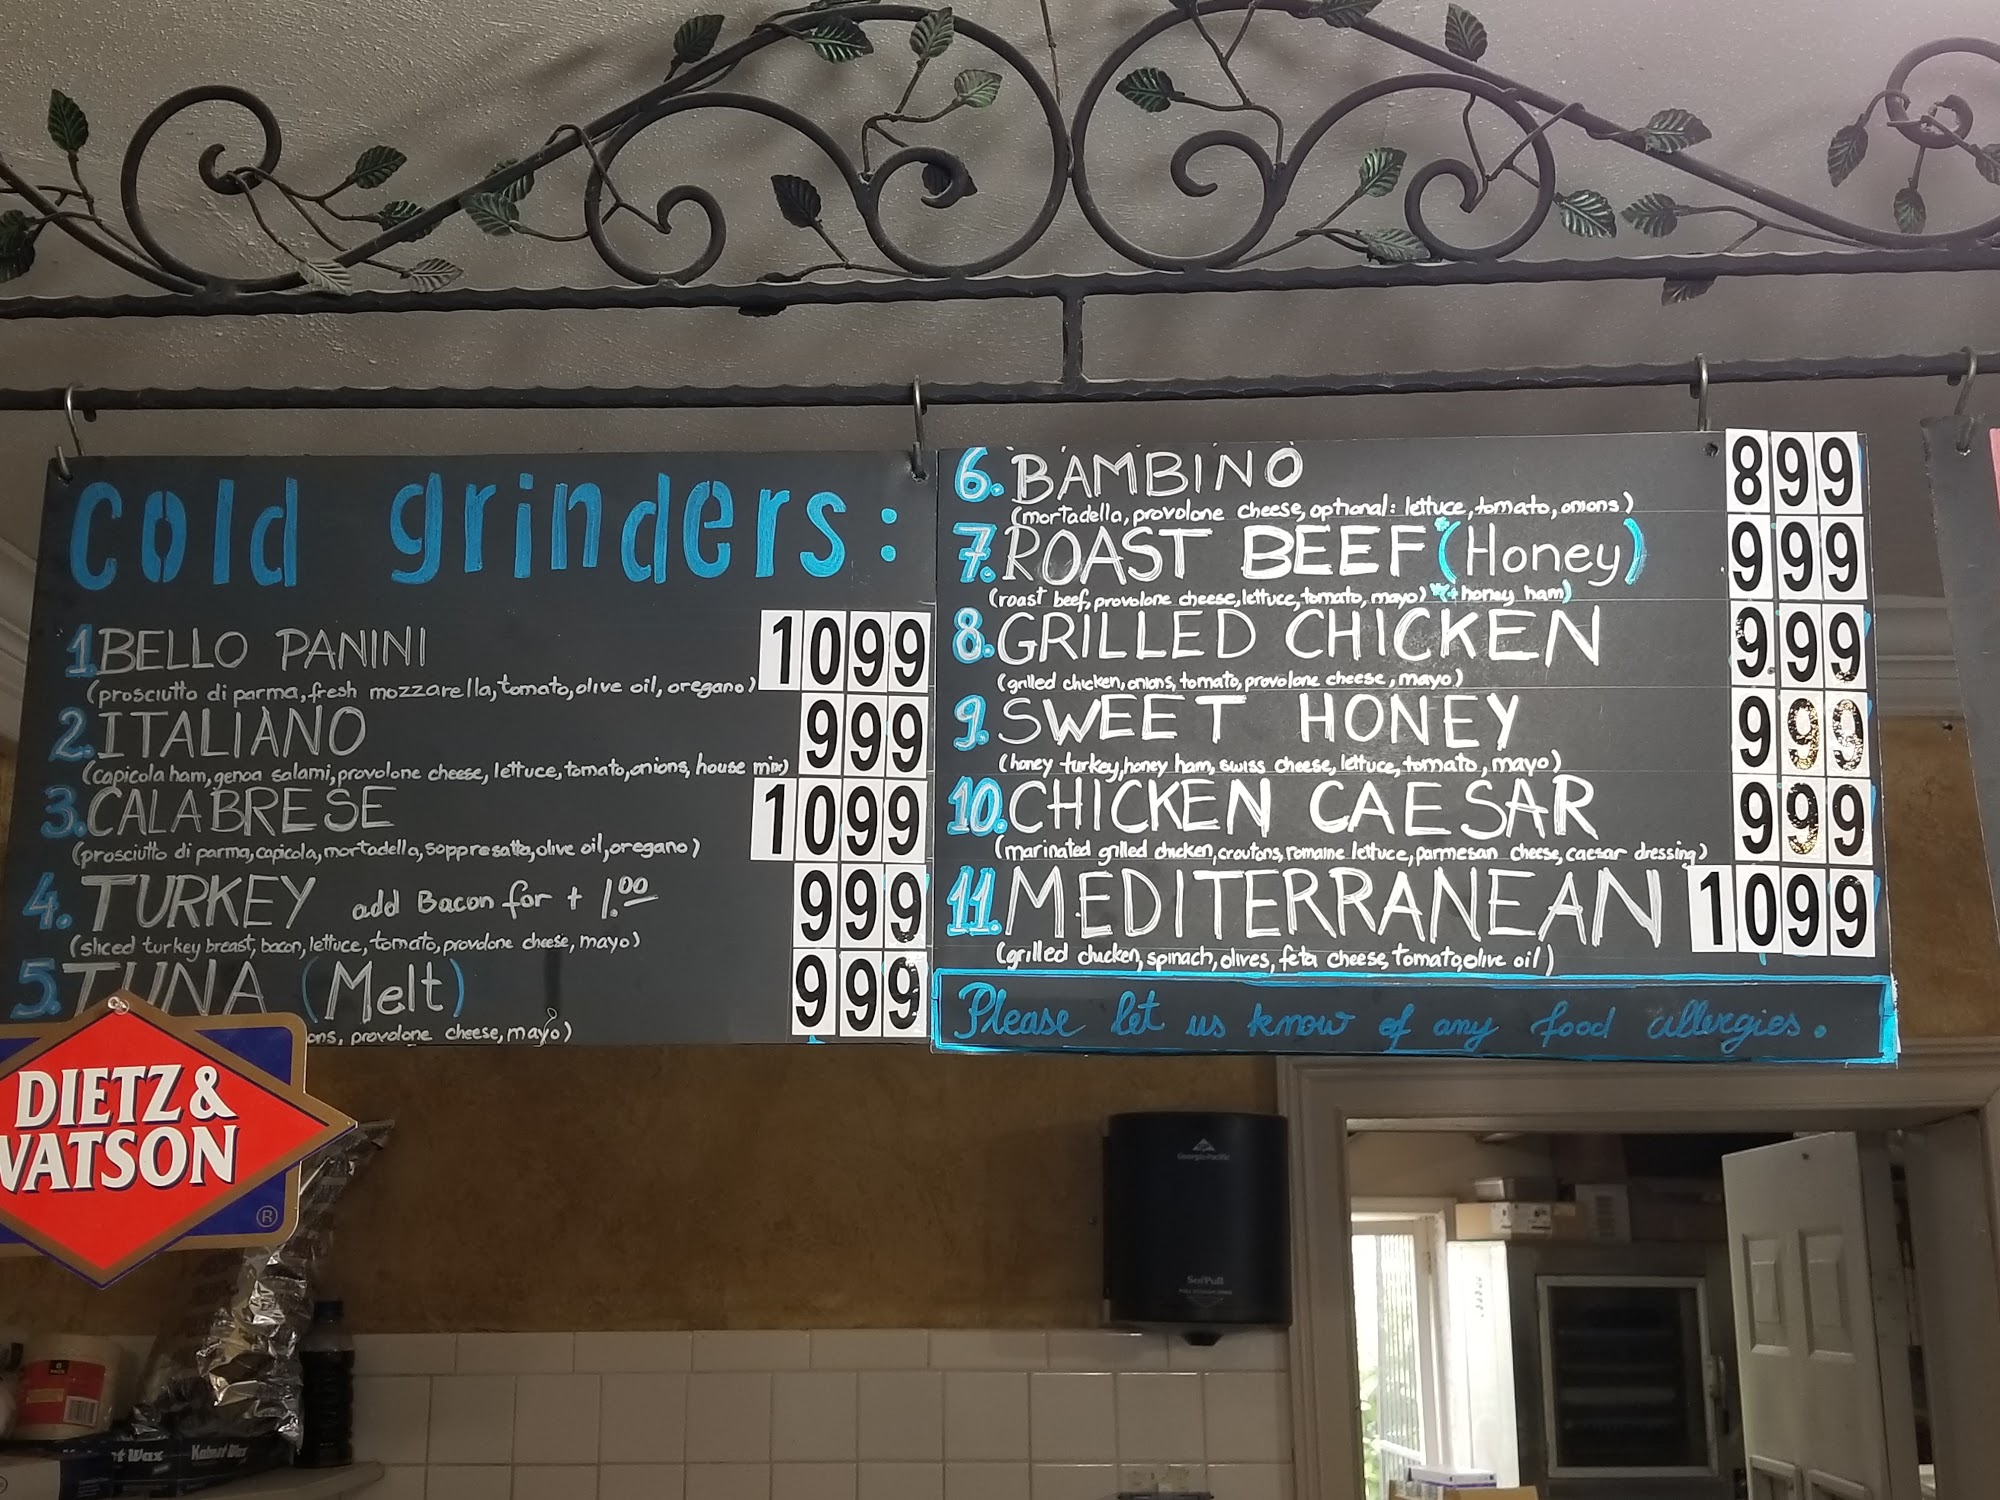 cold grinders:
1 BELLO PANINI 1099
(prosciutto di parma, fresh mozzarella, tomato, olive oil, oregano)
2. ITALIANO 999
(capicola ham, genoa salami, provolone cheese, lettuce, tomato, onions, house mix)
3. CALABRESE 1099
(prosciutto di parma, capicola, mortadella, soppresatta, olive oil, oregano)
4. TURKEY add Bacon for + 1.00 999
(sliced turkey breast, bacon, lettuce, tomato, provolone cheese, mayo)
5. TUNA (Melt) 999
ons, provolone cheese, mayo)
6. BAMBINO 899
(mortadella, provolone cheese, optional: lettuce, tomato, onions)
7. ROAST BEEF (Honey) 999
(roast beef, provolone cheese, lettuce, tomato, mayo) (+ honey ham)
8. GRILLED CHICKEN 9.99
(grilled chicken, onions, tomato, provolone cheese, mayo)
9. SWEET HONEY 999
(honey turkey, honey ham, swiss cheese, lettuce, tomato, mayo)
10. CHICKEN CAESAR 999
(marinated grilled chicken, croutons, romaine lettuce, parmesan cheese, caesar dressing)
11. MEDITERRANEAN 1099
(grilled chicken, spinach, olives, feta cheese, tomato, olive oil)
Please let us know of any food allergies.
DIETZ &
WATSON
®
Georgia-Pacific
SofPull
Kabnet Wax